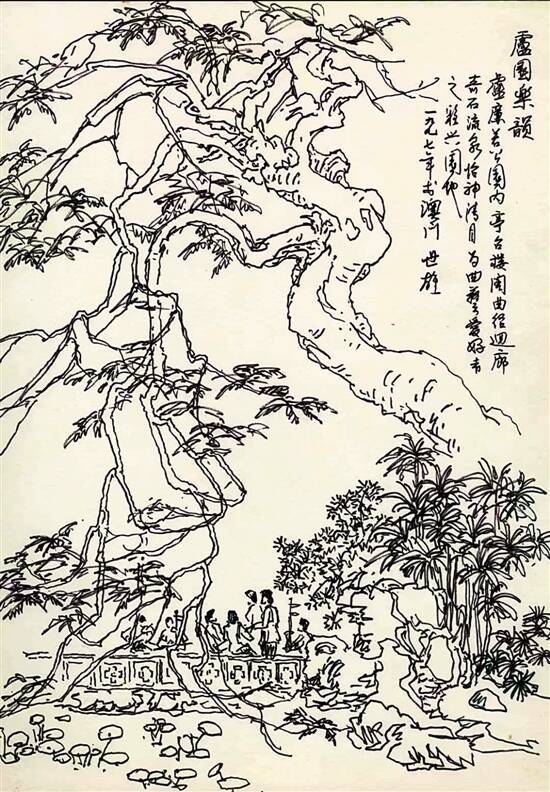 盧園樂韻
盧廉若公園內亭台樓閣曲徑迴廊
奇石流泉怡神清目為曲藝愛好者
之雅興園地
一九七年于澳门 世雄